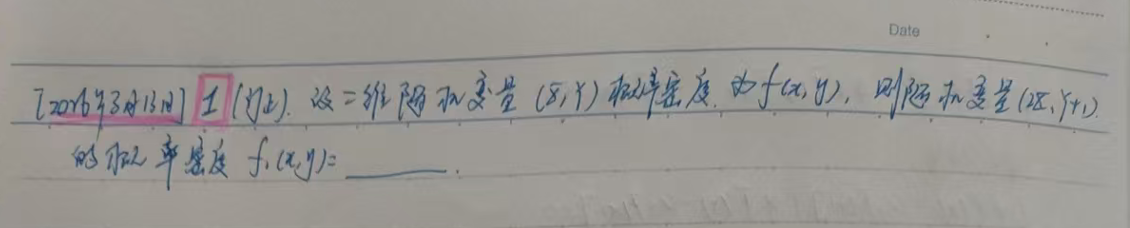 Date
[2026年3月13日] 1 (填空). 设二维随机变量 (X,Y) 概率密度为 f(x,y), 则随机变量 (2X,Y+1)
的概率密度 f₁(x,y)=______.